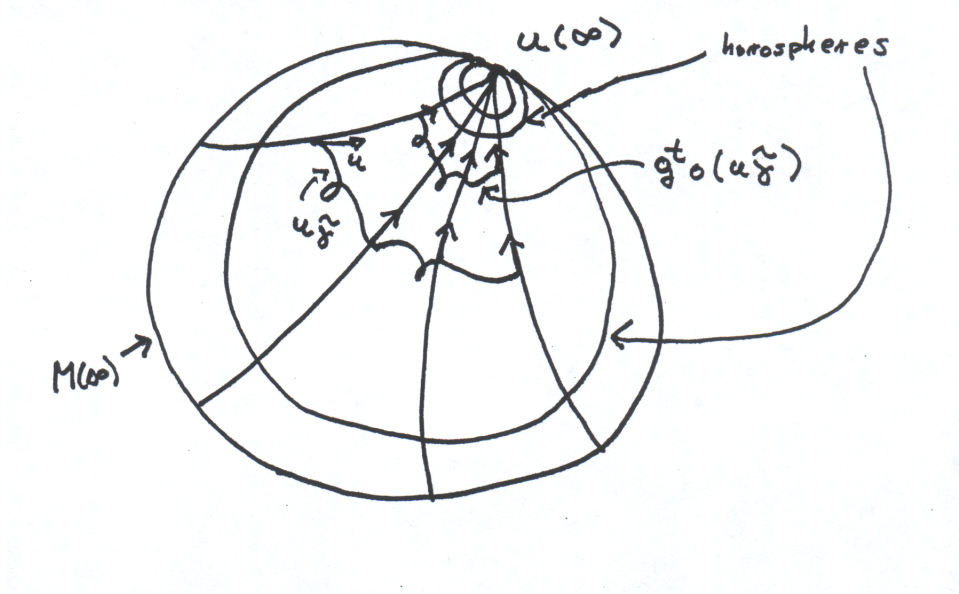 u(∞)
horospheres
u
gᵗ∘(uγ̃)
uγ̃
M(∞)